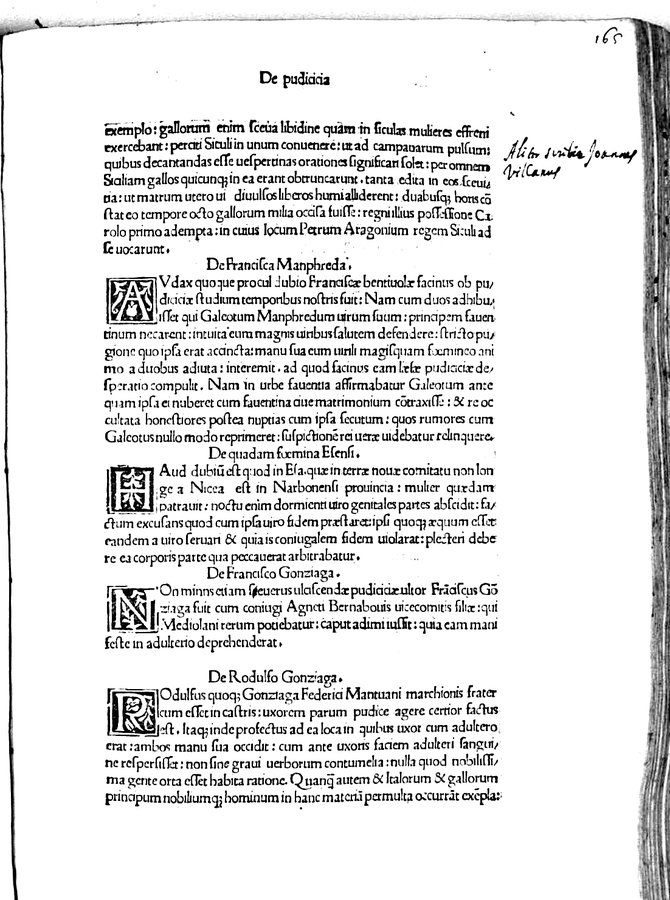 165
De pudicicia
exemplo: gallorum enim scæua libidine quam in siculas mulieres effreni
exercebant: perciti Siculi in unum conuenere: ut ad campanarum pulsum:
quibus decantandas esse uespertinas orationes significari solet: per omnem
Siciliam gallos quicunq; in ea erant obtruncarunt. tanta edita in eos sæui
tia: ut matrum utero ui diuulsos liberos humi alliderent: duabusq; horis cō
stat eo tempore octo gallorum milia occisa fuisse: regni illius possessione Ca
rolo primo adempta: in cuius locum Petrum Aragonium regem Siculi ad
se uocarunt.
Aliter scribit Joannes
Villanus
De Francisca Manphreda.
AVdax quoque procul dubio Franciscæ bentiuolæ facinus ob pu/
diciciæ studium temporibus nostris fuit: Nam cum duos adhibu/
isset qui Galeotum Manphredum uirum suum: principem fauen
tinum necarent: intuita eum magnis uiribus salutem defendere: stricto pu/
gione quo ipsa erat accincta: manu sua eum uirili magisquam fœmineo ani
mo a duobus adiuta: interemit. ad quod facinus eam læsæ pudiciciæ de/
speratio compulit. Nam in urbe fauentia affirmabatur Galeotum ante
quam ipsa ei nuberet cum fauentina ciue matrimonium cōtraxisse: & re oc
cultata honestiores postea nuptias cum ipsa secutum: quos rumores cum
Galeotus nullo modo reprimeret: suspictionē rei ueræ uidebatur relinquere.
De quadam fœmina Esensi.
HAud dubiū est quod in Esa, quæ in terræ nouæ comitatu non lon
ge a Nicea est in Narbonensi prouincia: mulier quædam
patrauit: noctu enim dormienti uiro genitales partes abscidit: fa/
ctum excusans quod cum ipsa uiro fidem præstaret: ipsi quoq; æquum esset
eandem a uiro seruari & quia is coniugalem fidem uiolarat: plecteri debe
re ea corporis parte qua peccauerat arbitrabatur.
De Francisco Gonziaga.
NOn minus etiam seuerus ulciscendæ pudiciciæ ultor Frāciscus Gō
ziaga fuit cum coniugi Agneti Bernabouis uicecomitis filiæ: qui
Mediolani rerum potiebatur: caput adimi iussit: quia eam mani
feste in adulterio deprehenderat.
De Rodulfo Gonziaga.
ROdulfus quoq; Gonziaga Federici Mantuani marchionis frater
cum esset in castris: uxorem parum pudice agere certior factus
est. Itaq; inde profectus ad ea loca in quibus uxor cum adultero
erat: ambos manu sua occidit: cum ante uxoris faciem adulteri sangui/
ne respersisset: non sine graui uerborum contumelia: nulla quod nobilissi/
ma gente orta esset habita ratione. Quanq̄ autem & Italorum & gallorum
principum nobiliumq; hominum in hanc materiā permulta occurrāt exēpla: